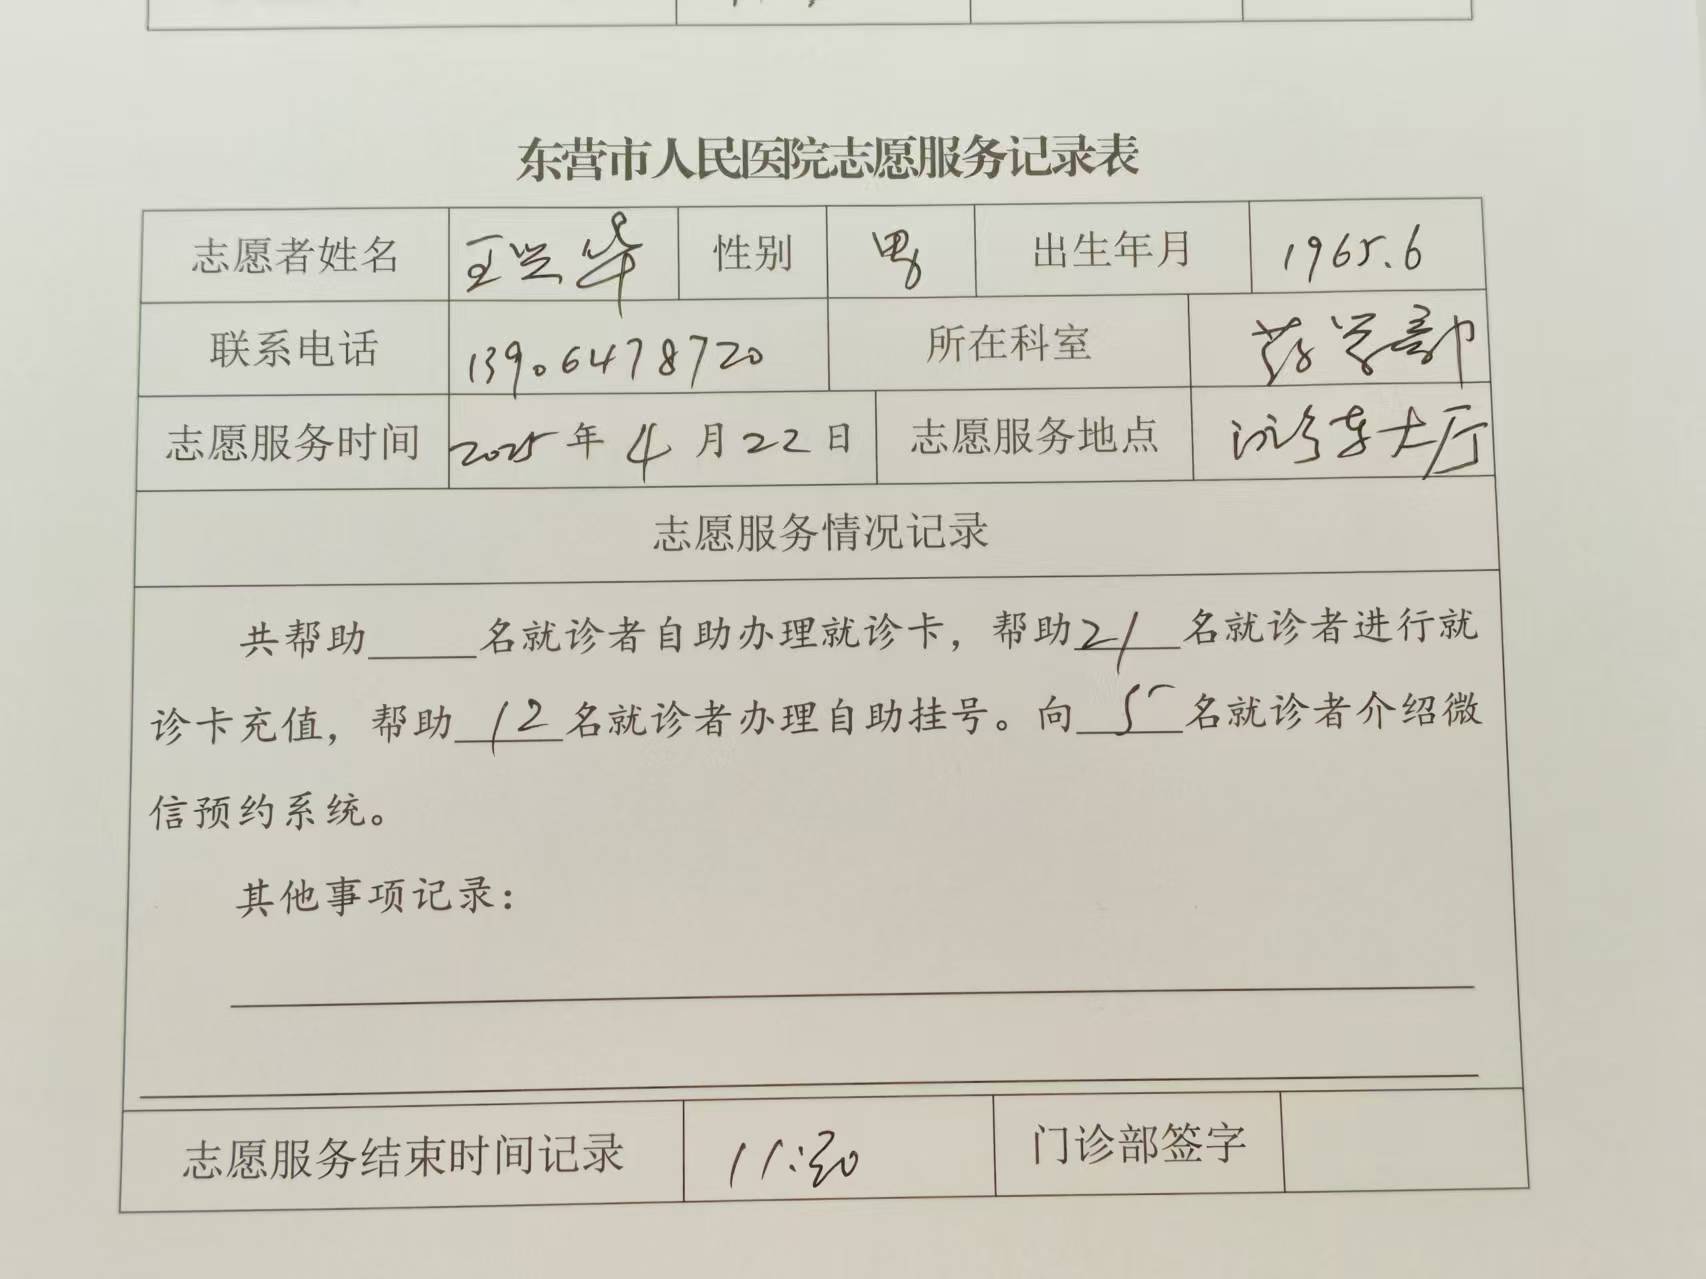 东营市人民医院志愿服务记录表
志愿者姓名 王兴华 性别 男 出生年月 1965.6
联系电话 13906478720 所在科室 药学部
志愿服务时间 2025年4月22日 志愿服务地点 大厅
志愿服务情况记录
共帮助_____名就诊者自助办理就诊卡，帮助21名就诊者进行就
诊卡充值，帮助12名就诊者办理自助挂号。向5名就诊者介绍微
信预约系统。
其他事项记录：
志愿服务结束时间记录 11:30 门诊部签字